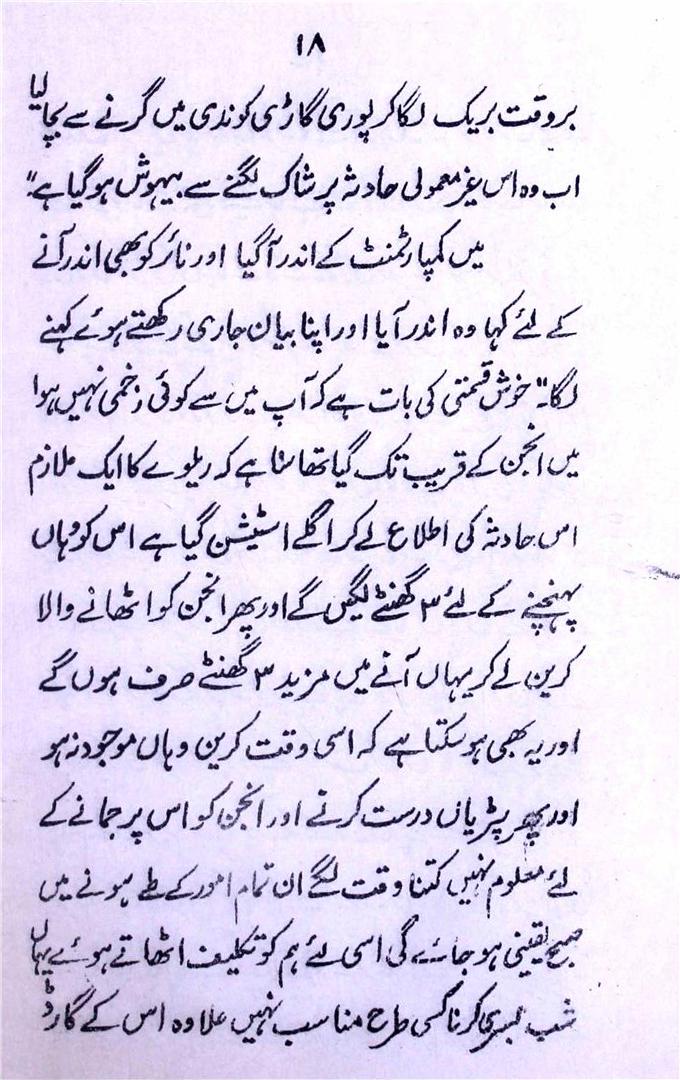 ۱۸
بروقت بریک لگا کر پوری گاڑی کو ندی میں گرنے سے بچا لیا
اب وہ اس غیر معمولی حادثہ پر شاک لگنے سے بیہوش ہوگیا ہے"
میں کمپارٹمنٹ کے اندر آگیا اور نائر کو بھی اندر آنے
کے لئے کہا وہ اندر آیا اور اپنا بیان جاری رکھتے ہوئے کہنے
لگا۔" خوش قسمتی کی بات ہے کہ آپ میں سے کوئی زخمی نہیں ہوا
میں انجن کے قریب تک گیا تھا سنا ہے کہ ریلوے کا ایک ملازم
اس حادثہ کی اطلاع لے کر اگلے اسٹیشن گیا ہے اس کو وہاں
پہنچنے کے لئے ۳ گھنٹے لگیں گے اور پھر انجن کو اٹھانے والا
کرین لے کر یہاں آنے میں مزید ۳ گھنٹے صرف ہوں گے
اور یہ بھی ہو سکتا ہے کہ اسی وقت کرین وہاں موجود نہ ہو
اور پھر پٹریاں درست کرنے اور انجن کو اس پر جمانے کے
لئے معلوم نہیں کتنا وقت لگے ان تمام امور کے طے ہونے میں
صبح یقینی ہو جائے گی اسی لئے ہم کو تکلیف اٹھاتے ہوئے یہاں
شب بسری کرنا کسی طرح مناسب نہیں علاوہ اس کے گارڈ